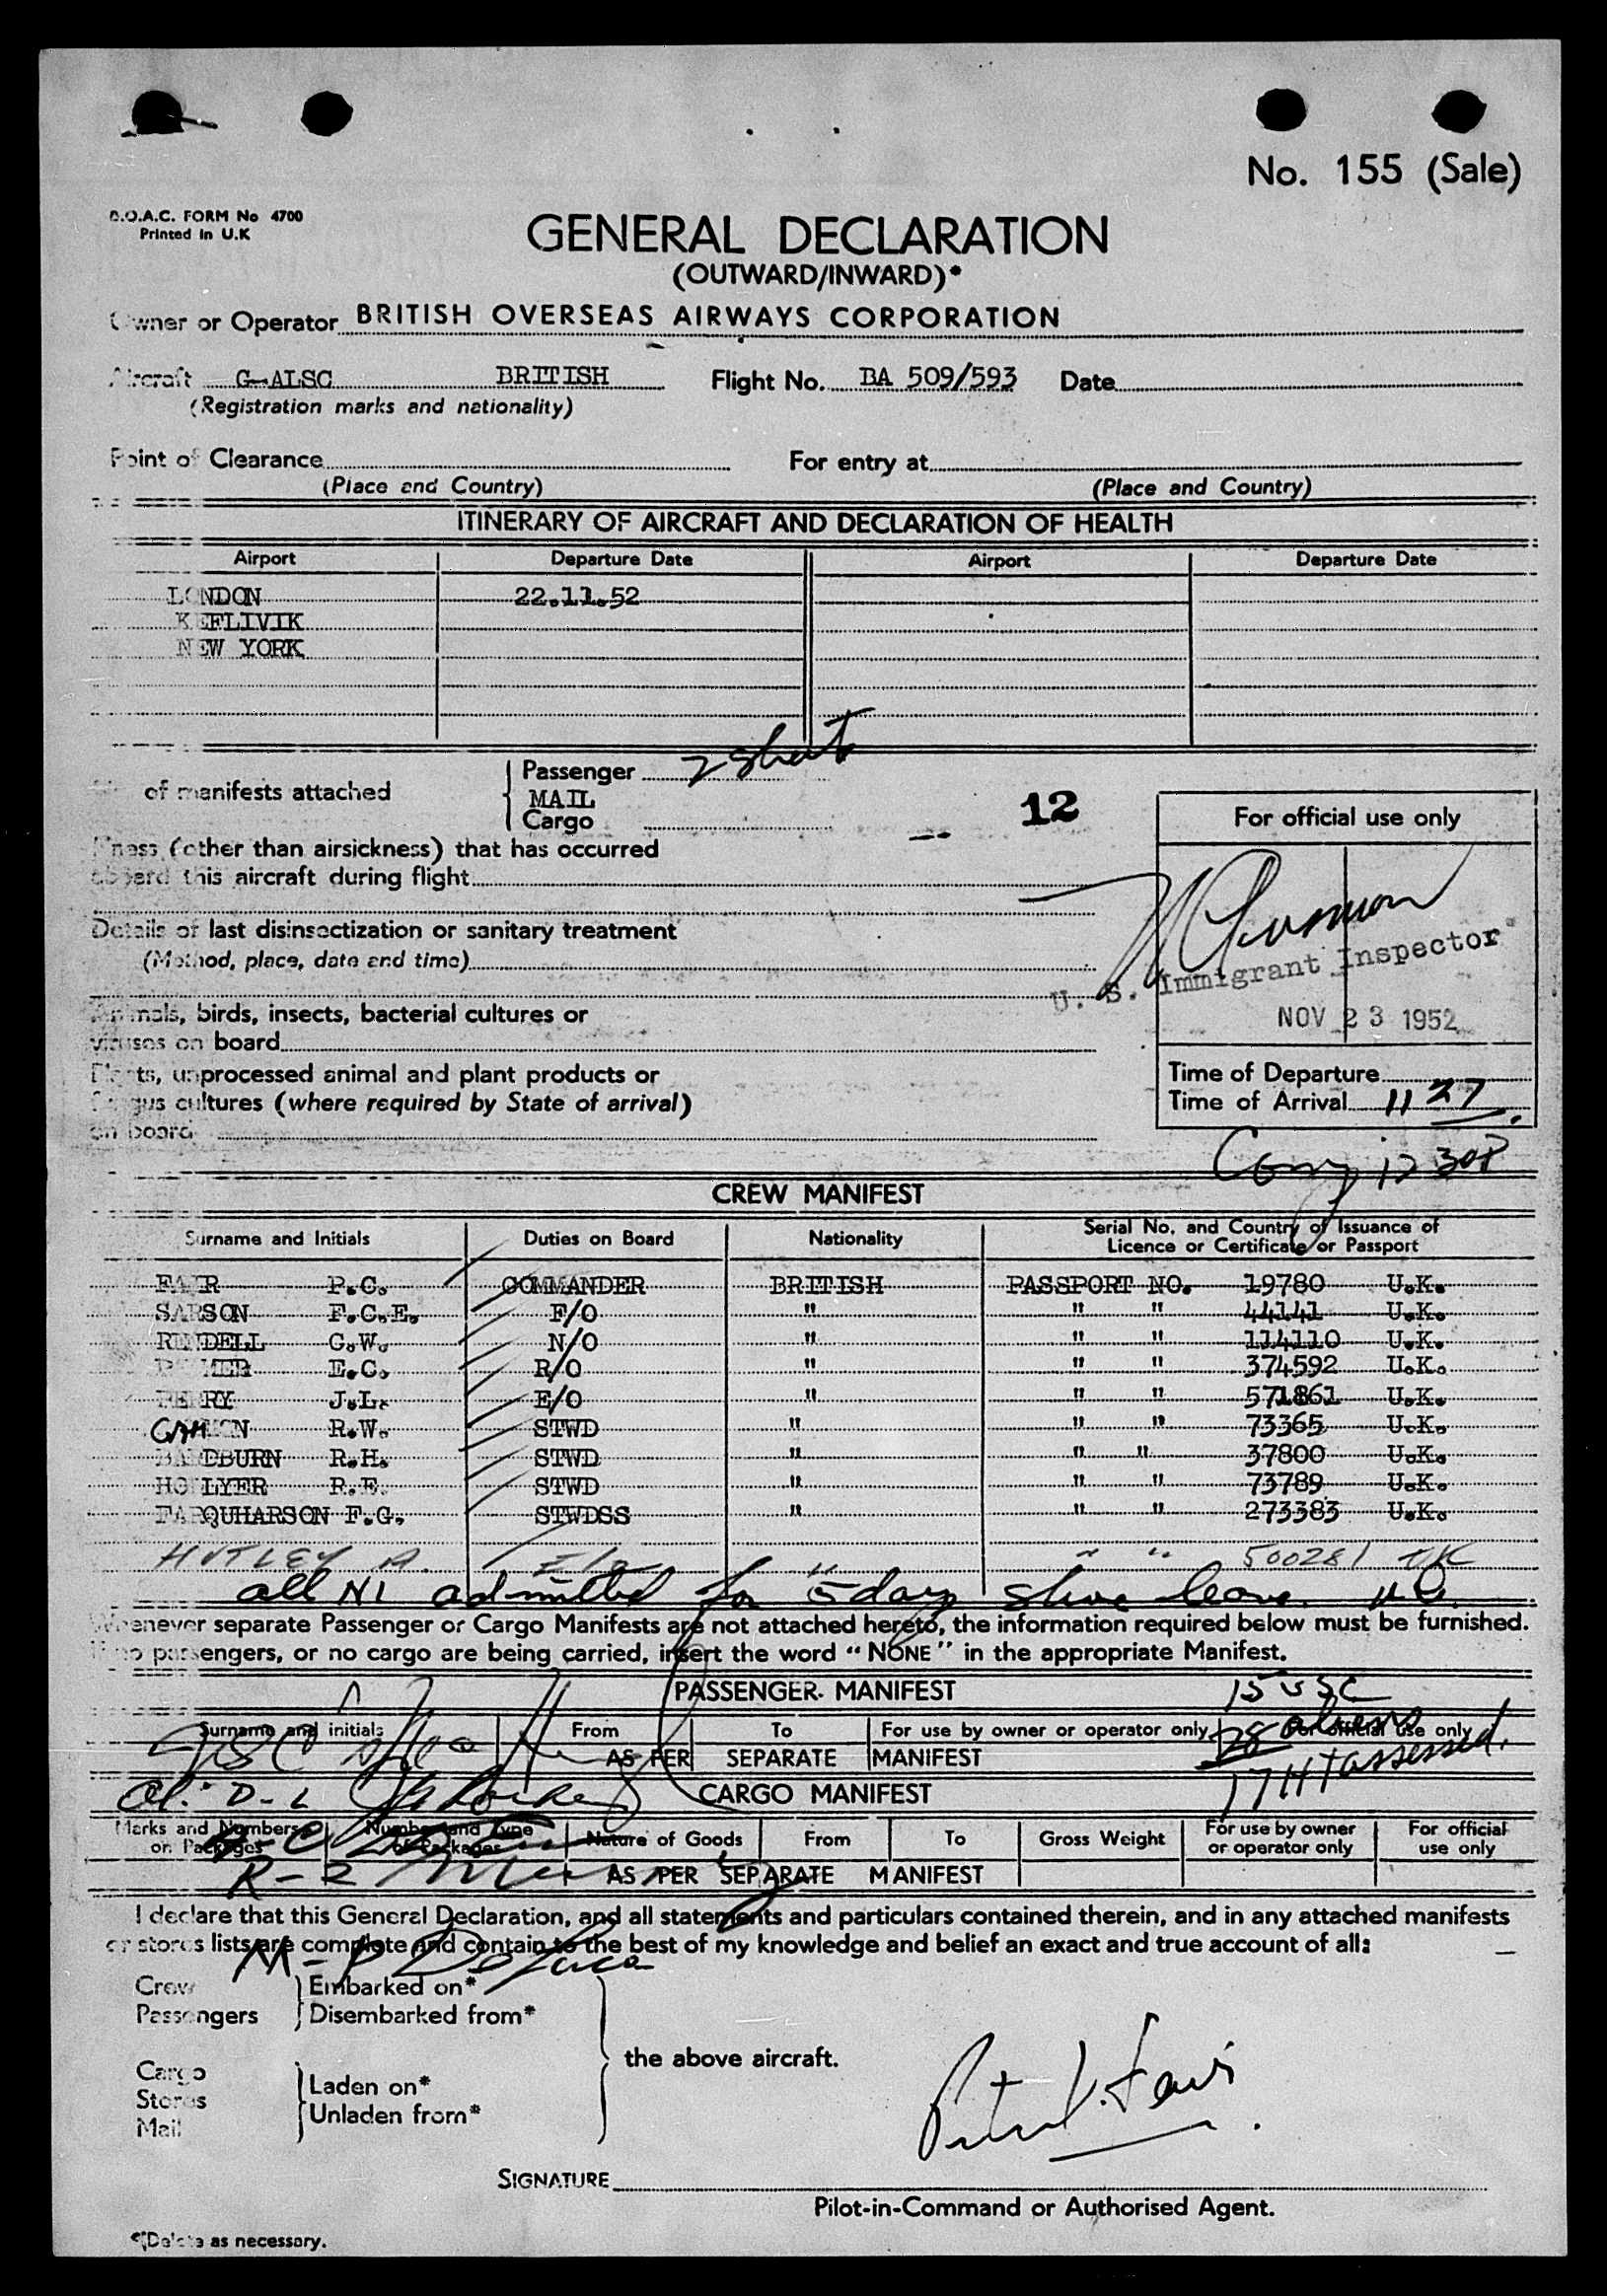 No. 155 (Sale)
B.O.A.C. FORM No 4700
Printed in U.K
GENERAL DECLARATION
(OUTWARD/INWARD)*
Owner or Operator BRITISH OVERSEAS AIRWAYS CORPORATION
Aircraft G-ALSC BRITISH Flight No. BA 509/593 Date
(Registration marks and nationality)
Point of Clearance For entry at
(Place and Country) (Place and Country)
ITINERARY OF AIRCRAFT AND DECLARATION OF HEALTH
Airport Departure Date Airport Departure Date
LONDON 22.11.52
KEFLIVIK
NEW YORK
of manifests attached
Passenger 2 sheets
MAIL
Cargo
12
For official use only
Illness (other than airsickness) that has occurred
aboard this aircraft during flight
Details of last disinsectization or sanitary treatment
(Method, place, date and time)
U. S. Immigrant Inspector
NOV 23 1952
Animals, birds, insects, bacterial cultures or
viruses on board
Plants, unprocessed animal and plant products or
fungus cultures (where required by State of arrival)
on board
Time of Departure
Time of Arrival 11 27
12 30P
CREW MANIFEST
Surname and Initials Duties on Board Nationality Serial No. and Country of Issuance of
Licence or Certificate or Passport
FAIR P.C. COMMANDER BRITISH PASSPORT NO. 19780 U.K.
SARSON F.C.E. F/O " " " 44141 U.K.
RENDELL G.W. N/O " " " 114110 U.K.
E.C. R/O " " " 374592 U.K.
PERRY J.L. E/O " " " 571861 U.K.
R.W. STWD " " " 73365 U.K.
BANDBURN R.H. STWD " " " 37800 U.K.
HOLLYER R.E. STWD " " " 73789 U.K.
FARQUHARSON F.G. STWDSS " " " 273383 U.K.
HUTLEY A. E/O " " " 500281 UK
all NI admitted for 5 days shore leave.
Whenever separate Passenger or Cargo Manifests are not attached hereto, the information required below must be furnished.
If no passengers, or no cargo are being carried, insert the word "NONE" in the appropriate Manifest.
PASSENGER MANIFEST
15 USC
Surname and initials From To For use by owner or operator only For official use only
28 aliens
AS PER SEPARATE MANIFEST
17 HT assessed.
CARGO MANIFEST
Marks and Numbers on Packages Number and Type of Packages Nature of Goods From To Gross Weight For use by owner or operator only For official use only
AS PER SEPARATE MANIFEST
I declare that this General Declaration, and all statements and particulars contained therein, and in any attached manifests
or stores lists are complete and contain to the best of my knowledge and belief an exact and true account of all:
Crew Embarked on*
Passengers Disembarked from*
the above aircraft.
Cargo
Stores Laden on*
Mail Unladen from*
SIGNATURE
Pilot-in-Command or Authorised Agent.
*(Delete as necessary.